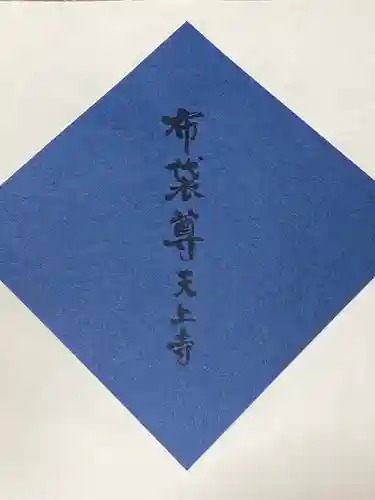 布袋尊 天上寺